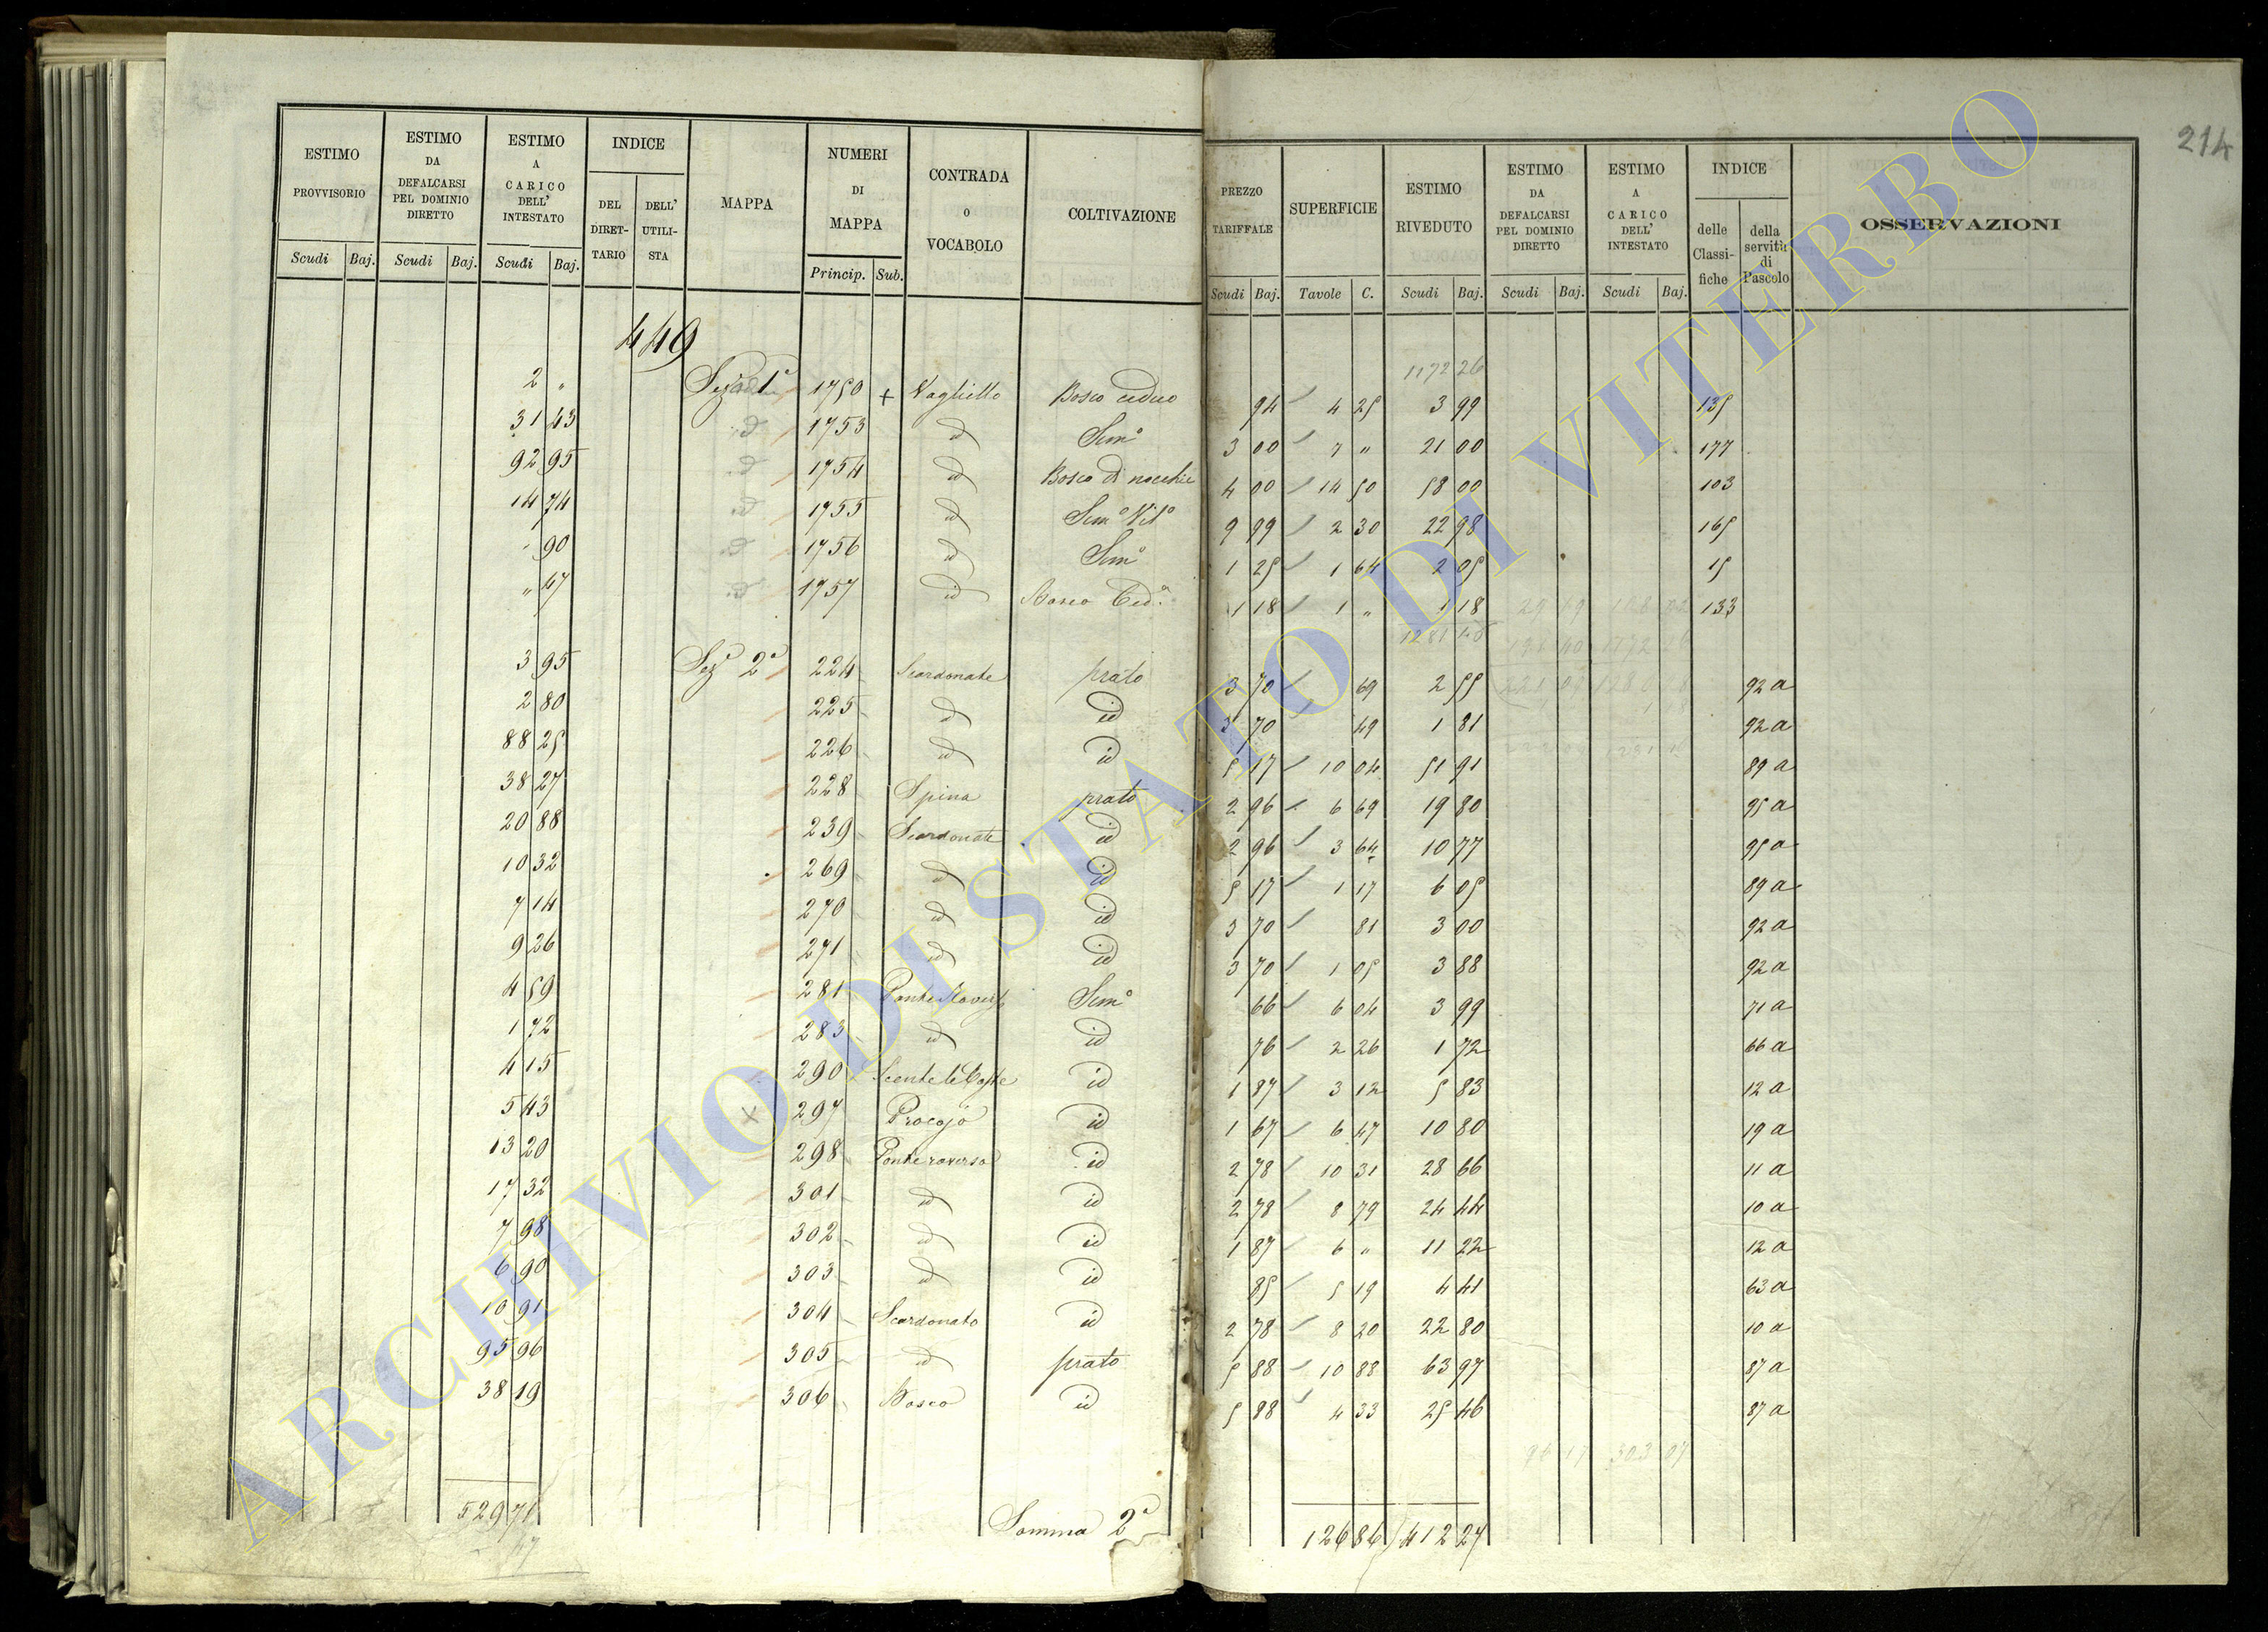 214
ESTIMO PROVVISORIO | ESTIMO DA DEFALCARSI PEL DOMINIO DIRETTO | ESTIMO A CARICO DELL' INTESTATO | INDICE | MAPPA | NUMERI DI MAPPA | CONTRADA O VOCABOLO | COLTIVAZIONE | PREZZO TARIFFALE | SUPERFICIE | ESTIMO RIVEDUTO | ESTIMO DA DEFALCARSI PEL DOMINIO DIRETTO | ESTIMO A CARICO DELL' INTESTATO | INDICE | OSSERVAZIONI
DEL DIRET-TARIO | DELL' UTILI-STA | delle Classi-fiche | della servitù di Pascolo
Scudi | Baj. | Scudi | Baj. | Scudi | Baj. | Princip. | Sub. | Scudi | Baj. | Tavole | C. | Scudi | Baj. | Scudi | Baj. | Scudi | Baj.
449
1172 26
2 " | Sez. 1a | 1750 | + | Vaglietto | Bosco ceduo | 94 | 4 25 | 3 99 | 135
31 43 | id | 1753 | id | Semo | 3 00 | 7 " | 21 00 | 177
92 95 | id | 1754 | id | Bosco di nocchie | 4 00 | 14 50 | 58 00 | 103
14 74 | id | 1755 | id | Semo Vito | 9 99 | 2 30 | 22 98 | 165
" 90 | id | 1756 | id | Semo | 1 25 | 1 64 | 2 05 | 15
" 47 | id | 1757 | id | Bosco Ced. | 1 18 | 1 " | 1 18 | 133
1281 46
3 95 | Seza 2a | 224 | Scardonate | prato | 3 70 | 69 | 2 55 | 92 a
2 80 | 225 | id | id | 3 70 | 49 | 1 81 | 92 a
88 25 | 226 | id | id | 5 17 | 10 04 | 51 91 | 89 a
38 27 | 228 | Spina | prato | 2 96 | 6 69 | 19 80 | 95 a
20 88 | 239 | Scardonate | id | 2 96 | 3 64 | 10 77 | 95 a
10 32 | 269 | id | id | 5 17 | 1 17 | 6 05 | 89 a
7 14 | 270 | id | id | 3 70 | 81 | 3 00 | 92 a
9 26 | 271 | id | id | 3 70 | 1 05 | 3 88 | 92 a
4 59 | 281 | Ponte Roverso | Semo | 66 | 6 04 | 3 99 | 71 a
1 72 | 283 | id | id | 76 | 2 26 | 1 72 | 66 a
4 15 | 290 | id | 1 87 | 3 12 | 5 83 | 12 a
5 43 | x | 297 | Procojo | id | 1 67 | 6 47 | 10 80 | 19 a
13 20 | 298 | Ponte roverso | id | 2 78 | 10 31 | 28 66 | 11 a
17 32 | 301 | id | id | 2 78 | 8 79 | 24 44 | 10 a
7 98 | 302 | id | id | 1 87 | 6 " | 11 22 | 12 a
6 90 | 303 | id | id | 85 | 5 19 | 4 41 | 63 a
10 91 | 304 | Scardonato | id | 2 78 | 8 20 | 22 80 | 10 a
95 96 | 305 | id | prato | 5 88 | 10 88 | 63 97 | 87 a
38 19 | 306 | Bosco | id | 5 88 | 4 33 | 25 46 | 87 a
529 71 | Somma 2a | 126 86 | 412 27
47
ARCHIVIO DI STATO DI VITERBO